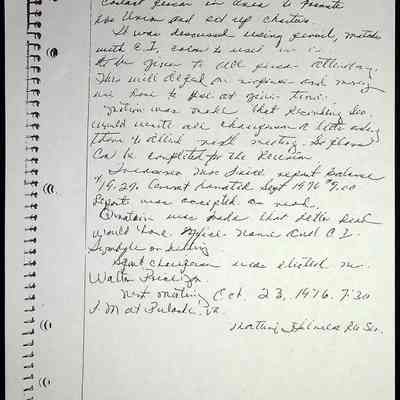 contact person in area to promote
the Union and set up charters.
It was discussed using pencil, match
with C.I. color to used
to be given to all attending.
This will depend on expense and money
we have to at given time.
motion was made that Recording Sec.
would write all chairpersons a letter asking
them to attend next meeting. So plans
can be completed for the Reunion.
Treasurer report Balance
19.29. Sept 1976
Reports was accepted as read.
motion was made that letter head
would have office names and C.I.
Symbols on letterhead
chairperson was elected Mr.
Walter Price Jr.
Next meeting Oct. 23, 1976. 7:30
P.M at Pulaski, Va.
Rec Sec.